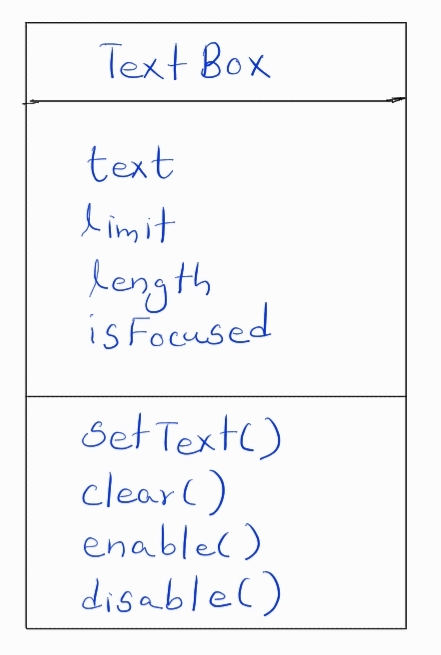 TextBox
text
limit
length
isFocused
setText()
clear()
enable()
disable()